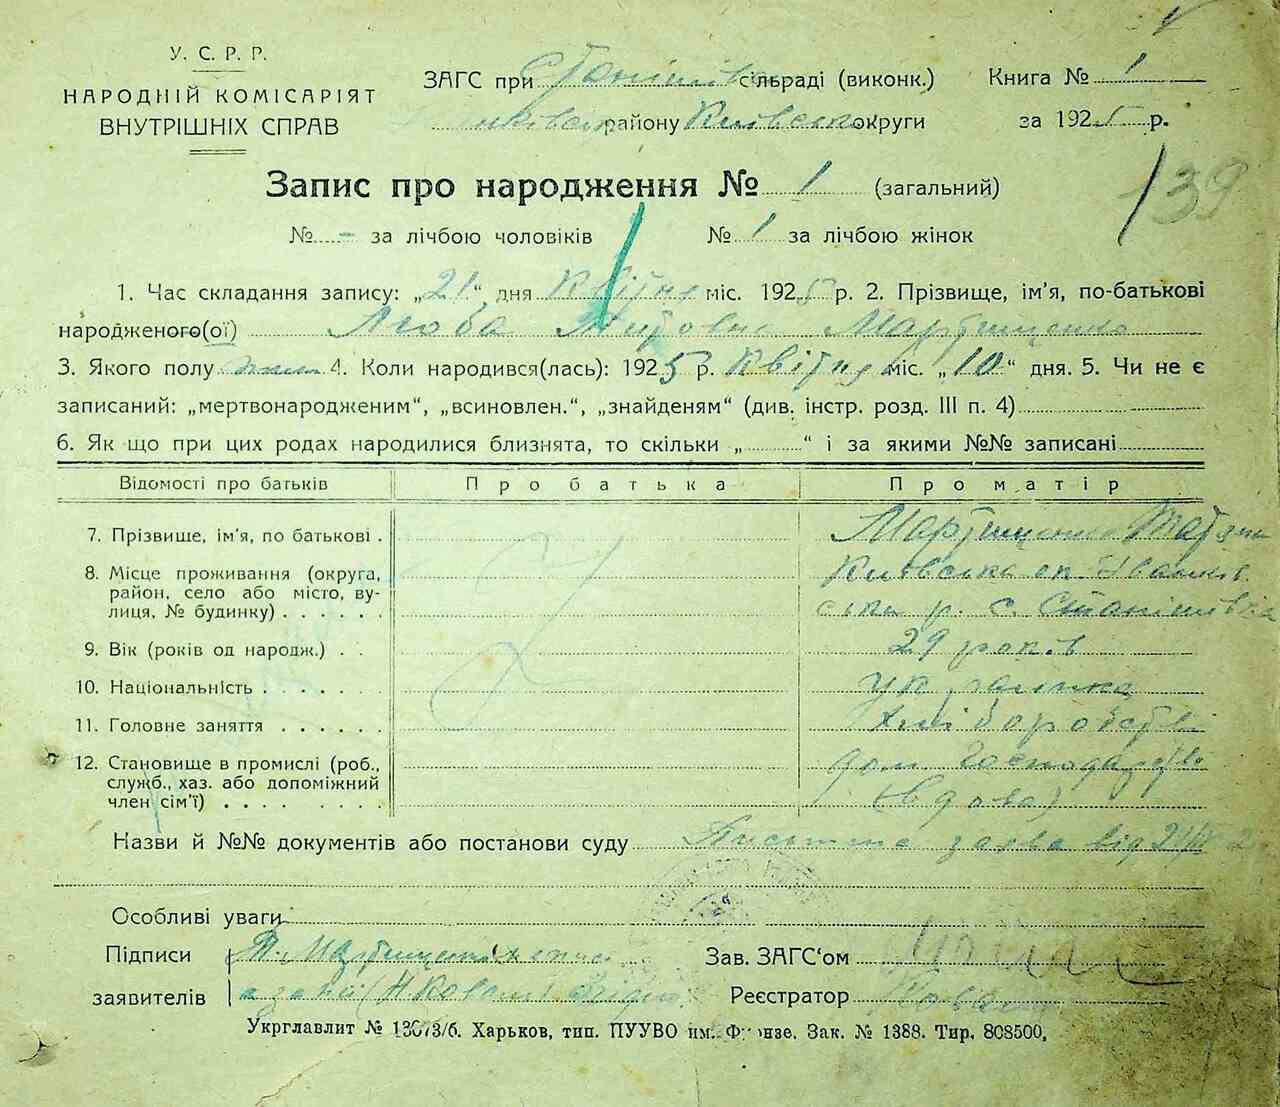 У. С. Р. Р.
НАРОДНІЙ КОМІСАРІЯТ
ВНУТРІШНІХ СПРАВ
ЗАГС при Станішівськ сільраді (виконк.)
районy Київської округи
Книга № 1
за 1925 р.
139
Запис про народження № 1 (загальний)
№ - за лічбою чоловіків № 1 за лічбою жінок
1. Час складання запису: „21“ дня Квітня міс. 1925 р. 2. Прізвище, ім'я, по-батькові
народженого(ої) Люба Титовна Мартищенко
3. Якого полу жін 4. Коли народився(лась): 1925 р. Квітня міс. „10“ дня. 5. Чи не є
записаний: „мертвонародженим“, „всиновлен.“, „знайденям“ (див. інстр. розд. III п. 4)
6. Як що при цих родах народилися близнята, то скільки „ “ і за якими №№ записані
Відомості про батьків Про батька Про матір
7. Прізвище, ім'я, по батькові . Мартищенко Татяна
8. Місце проживання (округа, район, село або місто, вулиця, № будинку) Київська ок. Іванків
ська р. с. Станішівка
9. Вік (років од народж.) . . 29 років
10. Національність українка
11. Головне заняття хліборобство
12. Становище в промислі (роб., служб., хаз. або допоміжний член сім'ї) дом. господарство
(вдова)
Назви й №№ документів або постанови суду Письмена заява від 21/IV
Особливі уваги
Підписи Т. Мартищенко
заявителів
Зав. ЗАГС‘ом
Реєстратор Коваль
Укрглавліт № 13673/б. Харьков, тип. ПУУВО им. Фрунзе. Зак. № 1388. Тир. 808500.